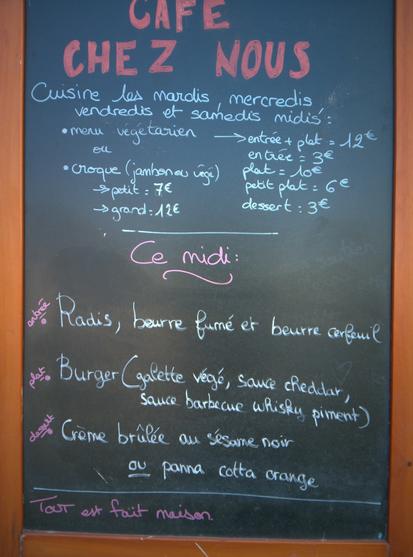 CAFE
CHEZ NOUS
Cuisine les mardis mercredis,
vendredis et samedis midis :
• menu végétarien → entrée + plat = 12€
ou
entrée = 3€
• croque (jambon ou végé)
plat = 10€
→ petit : 7€
petit plat = 6€
→ grand : 12€
dessert : 3€
Ce midi :
entrée : Radis, beurre fumé et beurre cerfeuil
plat : Burger (galette végé, sauce cheddar,
sauce barbecue whisky piment)
dessert : Crème brûlée au sésame noir
ou panna cotta orange
Tout est fait maison.